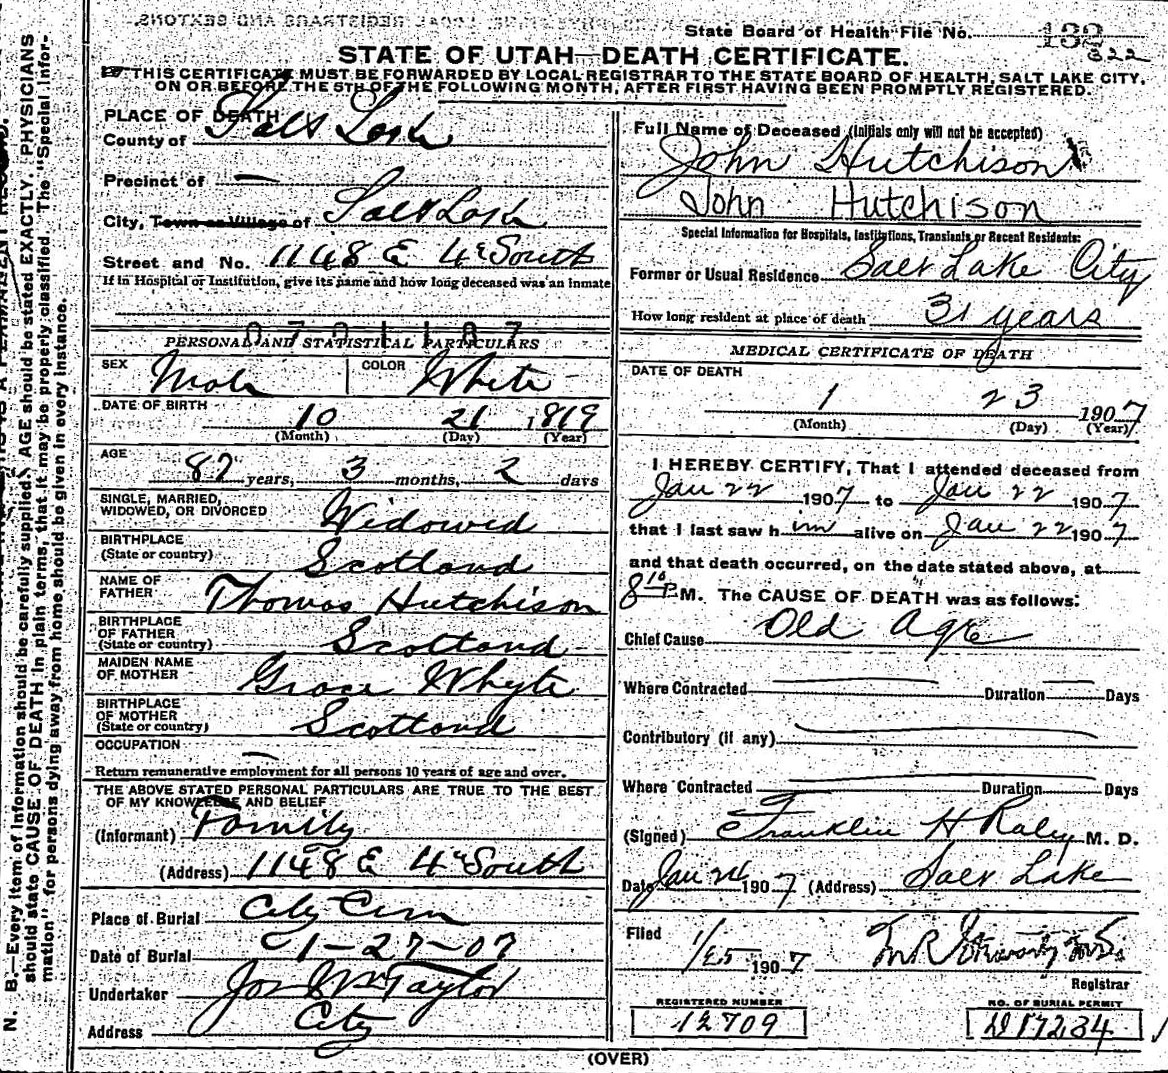 State Board of Health File No. 132
322
STATE OF UTAH—DEATH CERTIFICATE.
THIS CERTIFICATE MUST BE FORWARDED BY LOCAL REGISTRAR TO THE STATE BOARD OF HEALTH, SALT LAKE CITY,
ON OR BEFORE THE 5TH OF THE FOLLOWING MONTH, AFTER FIRST HAVING BEEN PROMPTLY REGISTERED.
PLACE OF DEATH
County of Salt Lake
Precinct of —
City, Town or Village of Salt Lake
Street and No. 1148 E 4th South
If in Hospital or Institution, give its name and how long deceased was an inmate
PERSONAL AND STATISTICAL PARTICULARS
SEX Male COLOR White
DATE OF BIRTH 10 21 1819
(Month) (Day) (Year)
AGE 87 years, 3 months, 2 days
SINGLE, MARRIED,
WIDOWED, OR DIVORCED Widowed
BIRTHPLACE
(State or country) Scotland
NAME OF
FATHER Thomas Hutchison
BIRTHPLACE
OF FATHER
(State or country) Scotland
MAIDEN NAME
OF MOTHER Grace Whyte
BIRTHPLACE
OF MOTHER
(State or country) Scotland
OCCUPATION —
Return remunerative employment for all persons 10 years of age and over.
THE ABOVE STATED PERSONAL PARTICULARS ARE TRUE TO THE BEST
OF MY KNOWLEDGE AND BELIEF
(Informant) Family
(Address) 1148 E 4th South
Place of Burial City Cem
Date of Burial 1-27-07
Undertaker Jos Wm Taylor
Address City
Full Name of Deceased (Initials only will not be accepted)
John Hutchison
John Hutchison
Special Information for Hospitals, Institutions, Transients or Recent Residents:
Former or Usual Residence Salt Lake City
How long resident at place of death 31 years
MEDICAL CERTIFICATE OF DEATH
DATE OF DEATH
1 23 1907
(Month) (Day) (Year)
I HEREBY CERTIFY, That I attended deceased from
Jan 22 1907 to Jan 22 1907
that I last saw him alive on Jan 22 1907
and that death occurred, on the date stated above, at
8 10 P M. The CAUSE OF DEATH was as follows:
Chief Cause Old Age
Where Contracted Duration Days
Contributory (if any)
Where Contracted Duration Days
(Signed) Franklin H Raley M. D.
Date Jan 24 1907 (Address) Salt Lake
Filed 1/25 1907
Registrar
REGISTERED NUMBER
12709
NO. OF BURIAL PERMIT
D17234
(OVER)
N. B.—Every item of information should be carefully supplied. AGE should be stated EXACTLY. PHYSICIANS
should state CAUSE OF DEATH in plain terms, that it may be properly classified. The "Special Infor-
mation" for persons dying away from home should be given in every instance.